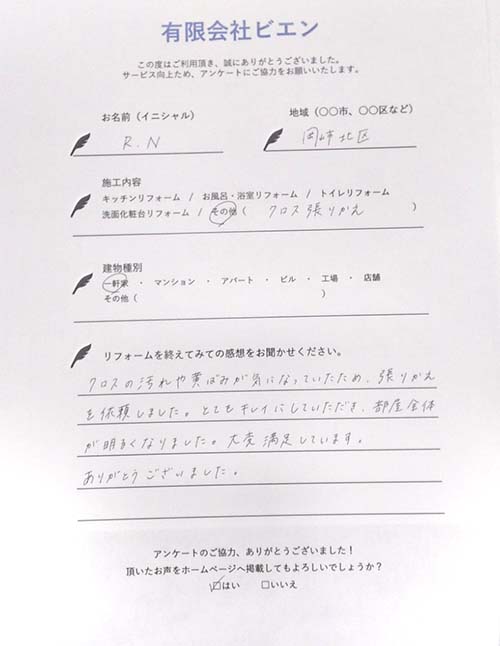 有限会社ビエン
この度はご利用頂き、誠にありがとうございました。
サービス向上ため、アンケートにご協力をお願いいたします。
お名前(イニシャル)
地域(〇〇市、〇〇区など)
R.N
岡山市北区
施工内容
キッチンリフォーム / お風呂・浴室リフォーム / トイレリフォーム
洗面化粧台リフォーム / その他( クロス張りかえ )
建物種別
一軒家 ・ マンション ・ アパート ・ ビル ・ 工場 ・ 店舗
その他( )
リフォームを終えてみての感想をお聞かせください。
クロスの汚れや黄ばみが気になっていたため、張りかえ
を依頼しました。とてもキレイにしていただき、部屋全体
が明るくなりました。大変満足しています。
ありがとうございました。
アンケートのご協力、ありがとうございました!
頂いたお声をホームページへ掲載してもよろしいでしょうか?
☑はい □いいえ